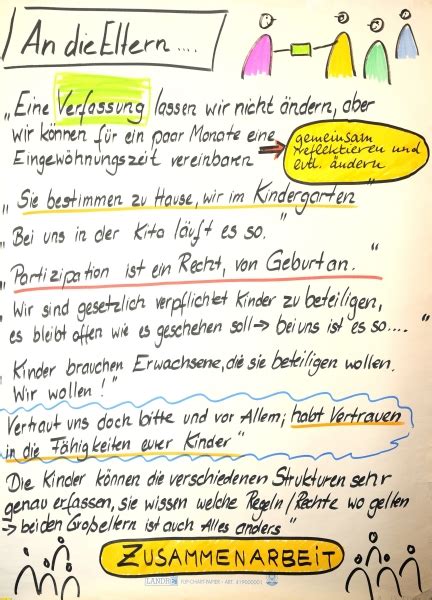 An die Eltern ....
„Eine Verfassung lassen wir nicht ändern, aber
wir können für ein paar Monate eine
Eingewöhnungszeit vereinbaren →
gemeinsam
reflektieren und
evtl. ändern
„Sie bestimmen zu Hause, wir im Kindergarten"
„Bei uns in der Kita läuft es so."
„Partizipation ist ein Recht, von Geburt an."
„Wir sind gesetzlich verpflichtet Kinder zu beteiligen,
es bleibt offen wie es geschehen soll → bei uns ist es so...."
„Kinder brauchen Erwachsene, die sie beteiligen wollen.
Wir wollen!"
Vertraut uns doch bitte und vor Allem; habt Vertrauen
in die Fähigkeiten eurer Kinder"
„Die Kinder können die verschiedenen Strukturen sehr
genau erfassen, sie wissen welche Regeln/Rechte wo gelten
→ bei den Großeltern ist auch Alles anders"
ZUSAMMENARBEIT
FLIPCHARTPAPIER - ART.